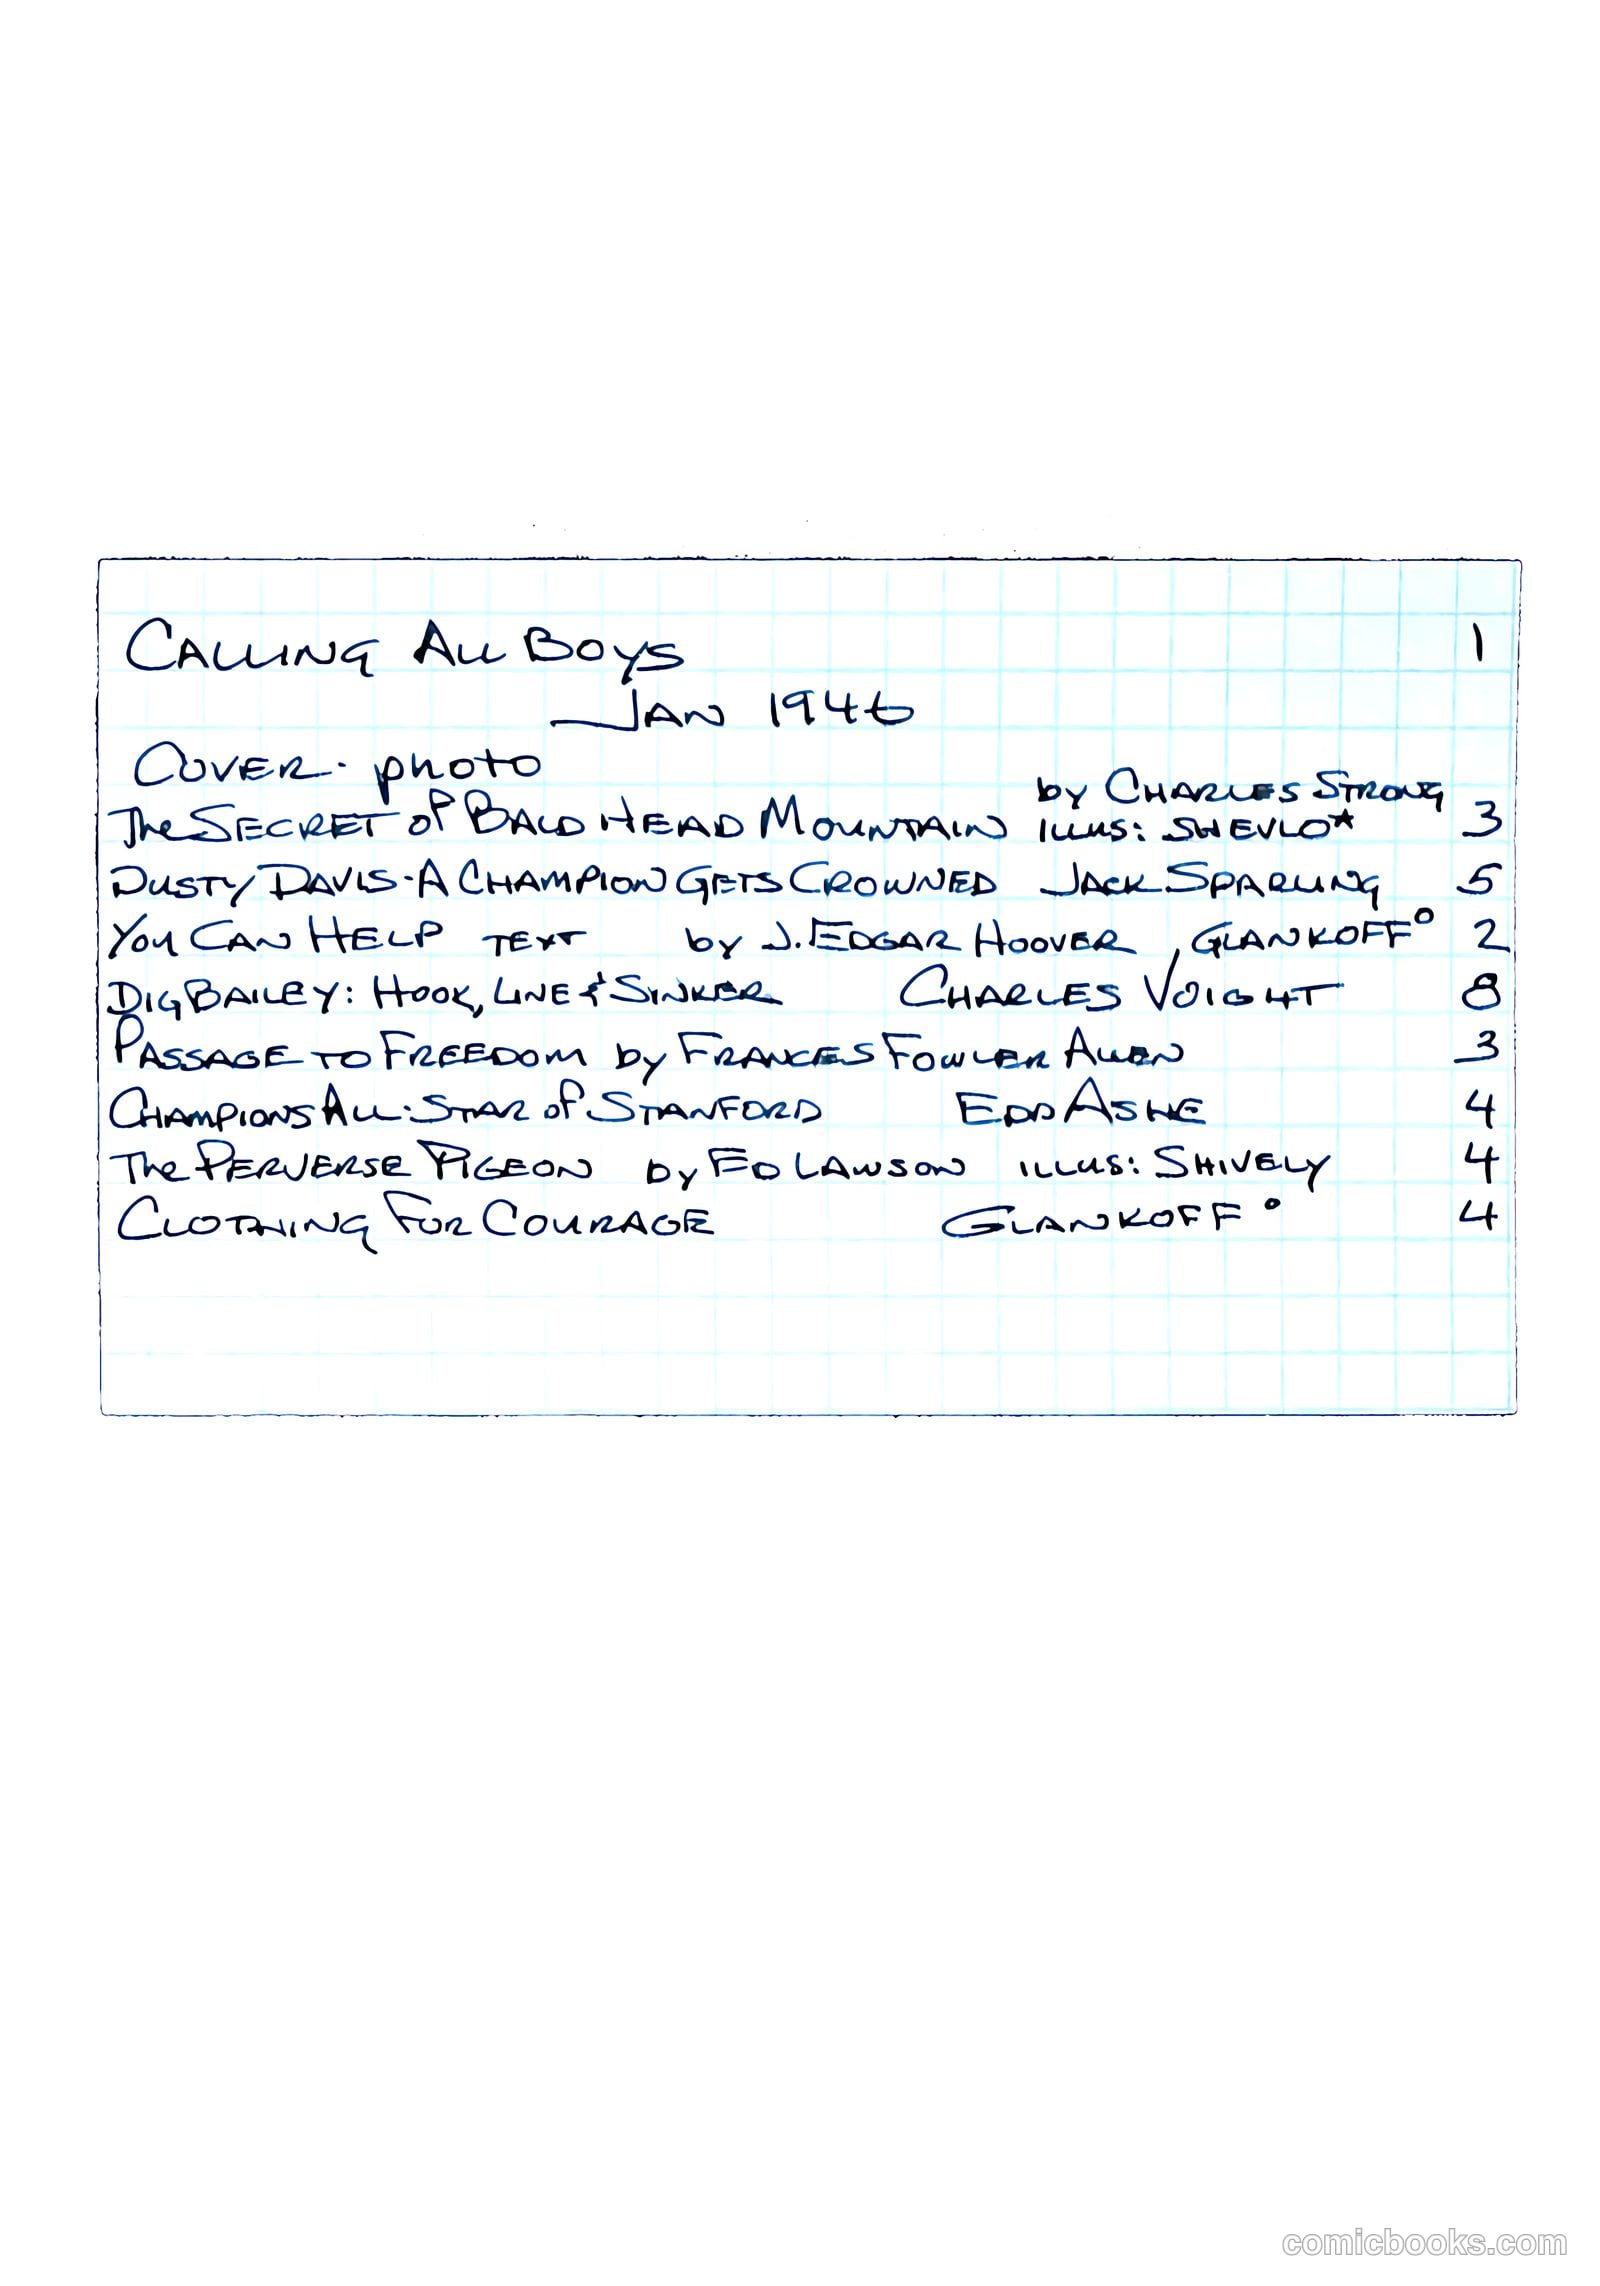 CALLING ALL BOYS 1
JAN 1946
COVER - photo
by CHARLES STRONG
The SECRET of BALD HEAD MOUNTAIN ILLUS: SHEVLO* 3
DUSTY DAVIS - A CHAMPION GETS CROWNED JACK SPARLING 5
YOU CAN HELP TEXT by J. EDGAR HOOVER, GLANKOFF° 2
DIG BAILEY: HOOK, LINE & SINKER CHARLES VOIGHT 8
PASSAGE TO FREEDOM by FRANCES FOWLER ALLEN 3
CHAMPIONS ALL: STAR of STANFORD EDD ASHE 4
The PERVERSE PIGEON by ED LAWSON ILLUS: SHIVELY 4
CLOTHING FOR COURAGE GLANKOFF° 4
comicbooks.com